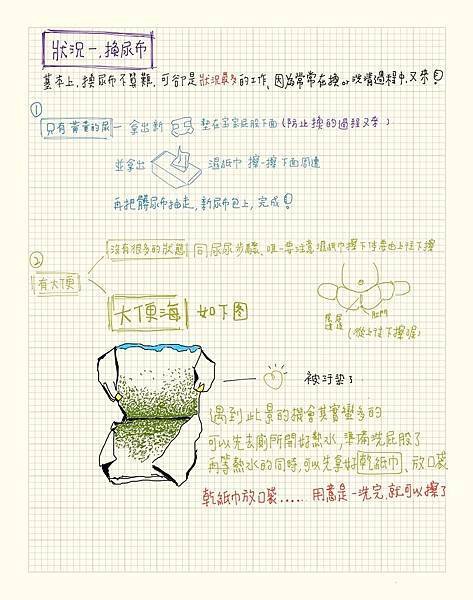 狀況一,換尿布
基本上,換尿布不算難,可卻是狀況最多的工作,因為常常在換or洗嘴過程中,又來!
①
只有黃黃的尿 — 拿出新 墊在寶寶屁股下面(防止換的過程又來)
並拿出 濕紙巾 擦一擦下面周遭
再把髒尿布抽走,新尿布包上,完成!
②
有大便
沒有很多的狀態 同尿尿步驟,唯一要注意濕紙巾擦下体要由上往下擦
(從上往下擦喔)
大便海 如下圖
被汙染了
遇到此景的機會其實蠻多的
可以先去廁所開好熱水,準備洗屁股了
再等熱水的同時,可以先拿好乾紙巾、放口袋
乾紙巾放口袋...... 用意是一洗完,就可以擦了